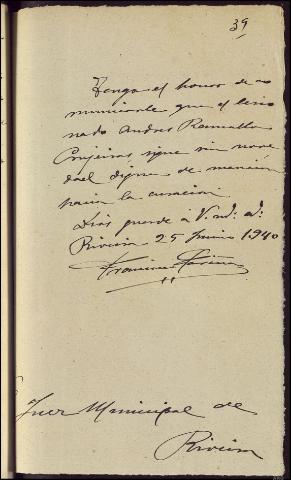 39
Tengo el honor de co
municarle que el lesio
nado Andres Ramallo
Crujeiras sigue sin nove
dad digna de mencion
hacia la curacion
Dios guarde a V. ad. a:
Riveira 25 Junio 1940
Francisco
Juez Municipal de
Riveira